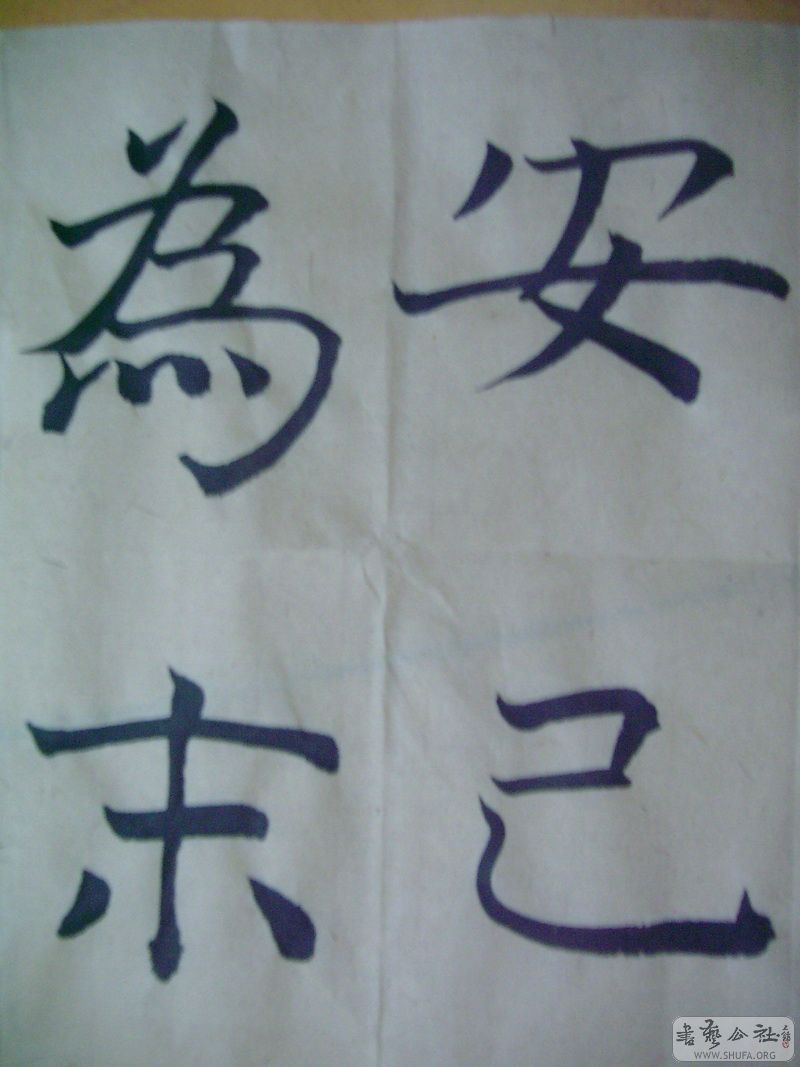 安己
為末
書藝公社
WWW.SHUFA.ORG